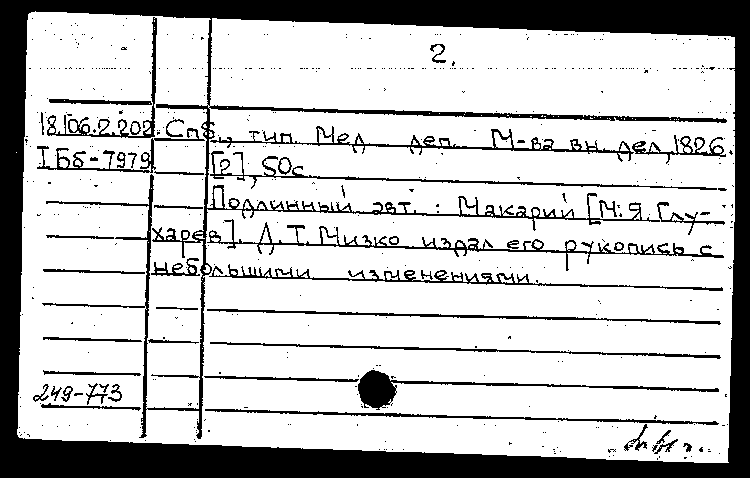 2.
18.106.2.202. Спб., тип. Мед деп. М-ва вн. дел, 1826.
I Бб-7979 [2], 50с.
Подлинный авт. : Макарий [М.Я. Глу-
харев]. Д.Т. Мизко издал его рукопись с
небольшими изменениями.
249-773